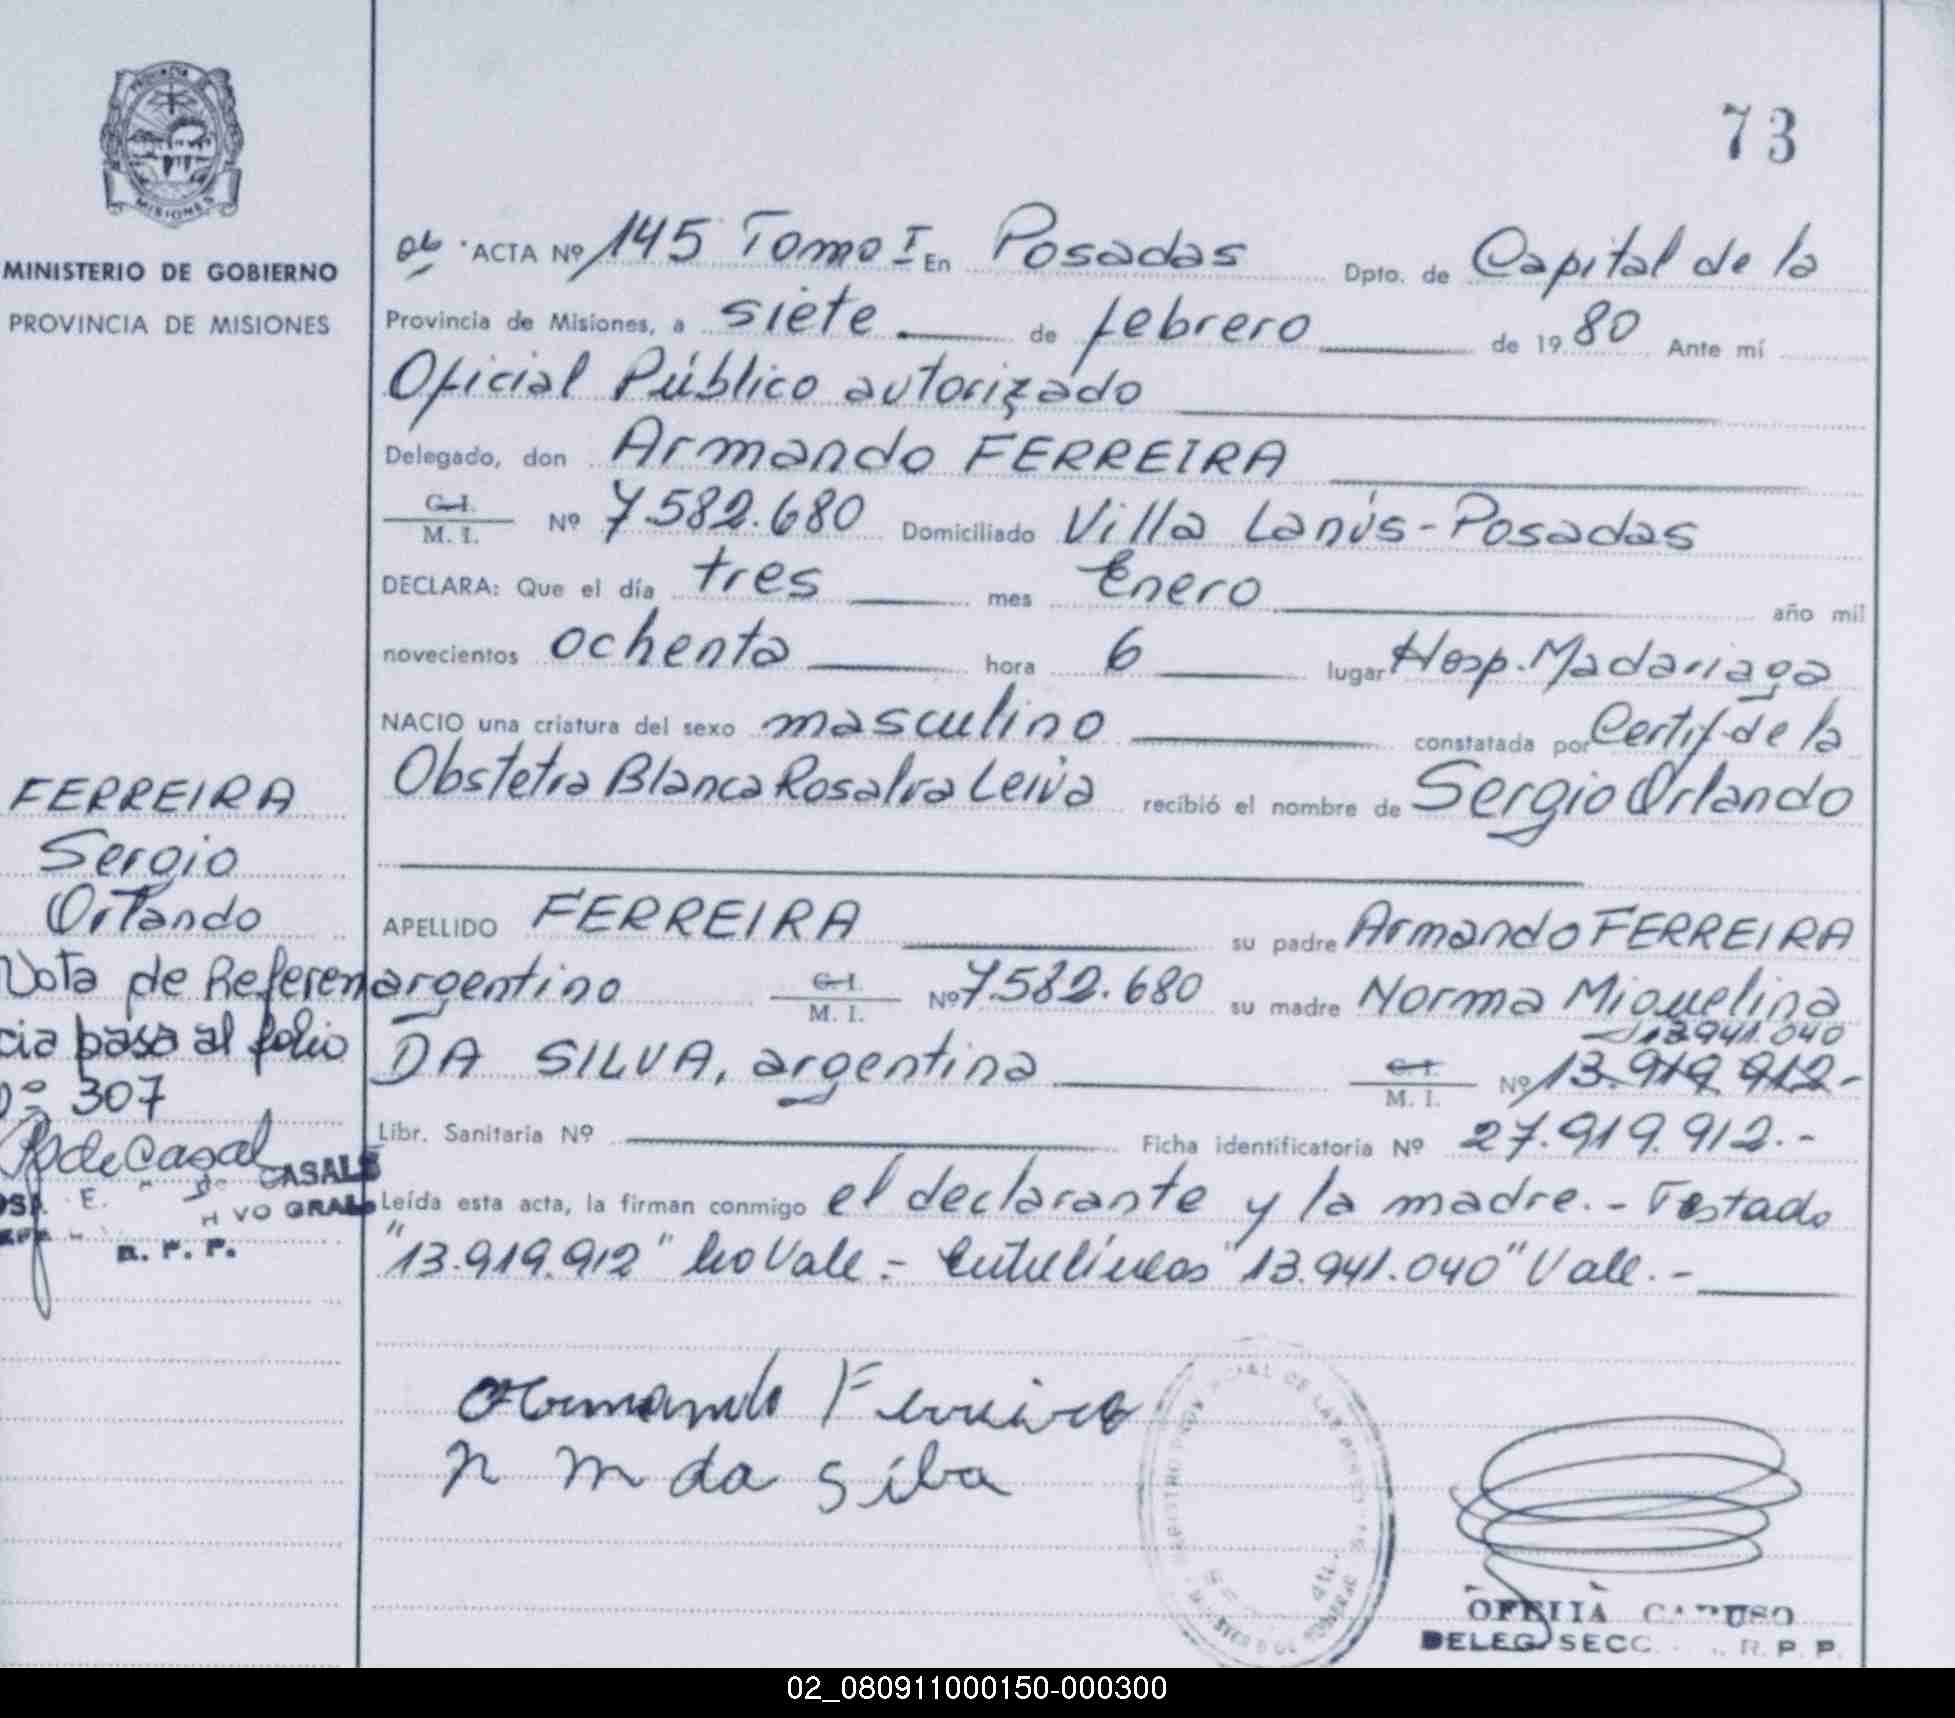 73
MINISTERIO DE GOBIERNO
PROVINCIA DE MISIONES
ACTA Nº 145 Tomo I En Posadas Dpto. de Capital de la
Provincia de Misiones, a siete de febrero de 1980 Ante mí
Oficial Público autorizado
Delegado, don Armando FERREIRA
C. I.
M. I. Nº 7.582.680 Domiciliado Villa Lanús - Posadas
DECLARA: Que el día tres mes Enero año mil
novecientos ochenta hora 6 lugar Hosp. Madariaga
NACIO una criatura del sexo masculino constatada por Certif. de la
Obstetra Blanca Rosalva Leiva recibió el nombre de Sergio Orlando
APELLIDO FERREIRA su padre Armando FERREIRA
argentino C. I. M. I. Nº 7.582.680 su madre Norma Miquelina
13.941.040
DA SILVA, argentina C. I. M. I. Nº 13.919.912-
Libr. Sanitaria Nº Ficha identificatoria Nº 27.919.912.-
Leída esta acta, la firman conmigo el declarante y la madre.- Testado
"13.919.912" No Vale.- Entrelíneas "13.941.040" Vale.-
FERREIRA
Sergio
Orlando
Nota de Referen
cia pasa al folio
Nº 307
CASALS
R. P. P.
Armando Ferreira
n m da silba
OFELIA CARUSO
DELEG. SECC. R. P. P.
MISIONES
02_080911000150-000300